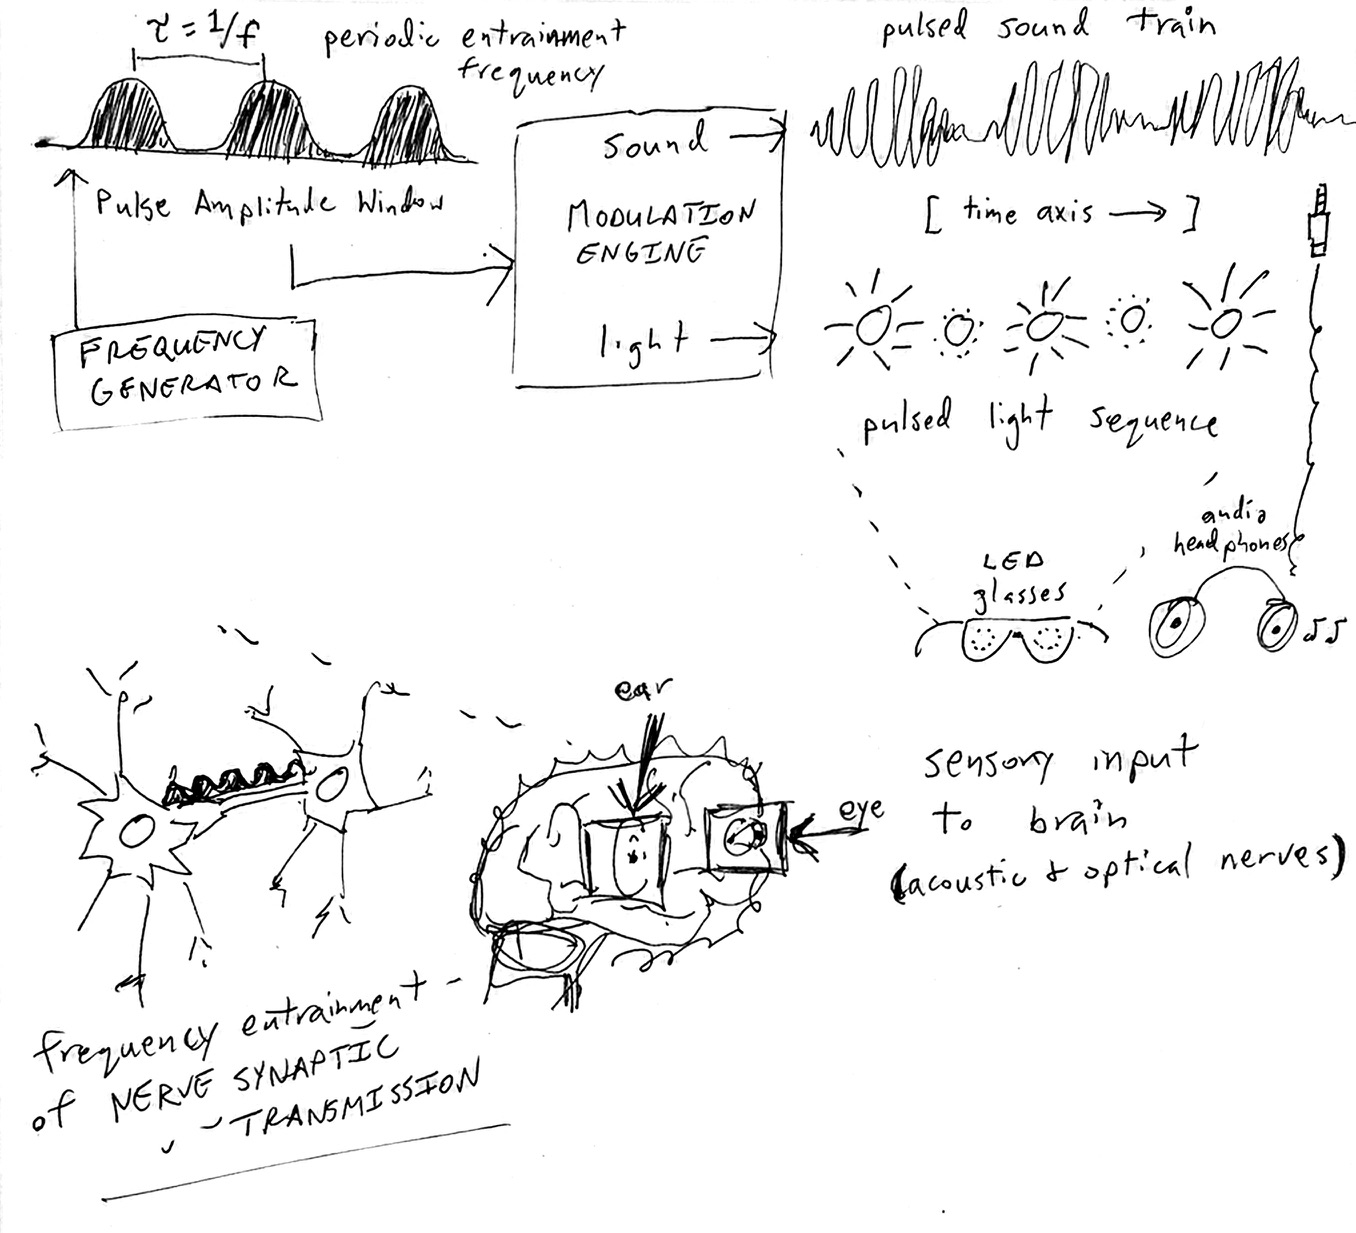 τ = 1/f
periodic entrainment
frequency
Pulse Amplitude Window
FREQUENCY
GENERATOR
sound
MODULATION
ENGINE
light
pulsed sound train
[ time axis → ]
pulsed light sequence
LED
glasses
audio
headphones
ear
eye
sensory input
to brain
(acoustic & optical nerves)
frequency entrainment
of NERVE SYNAPTIC
TRANSMISSION